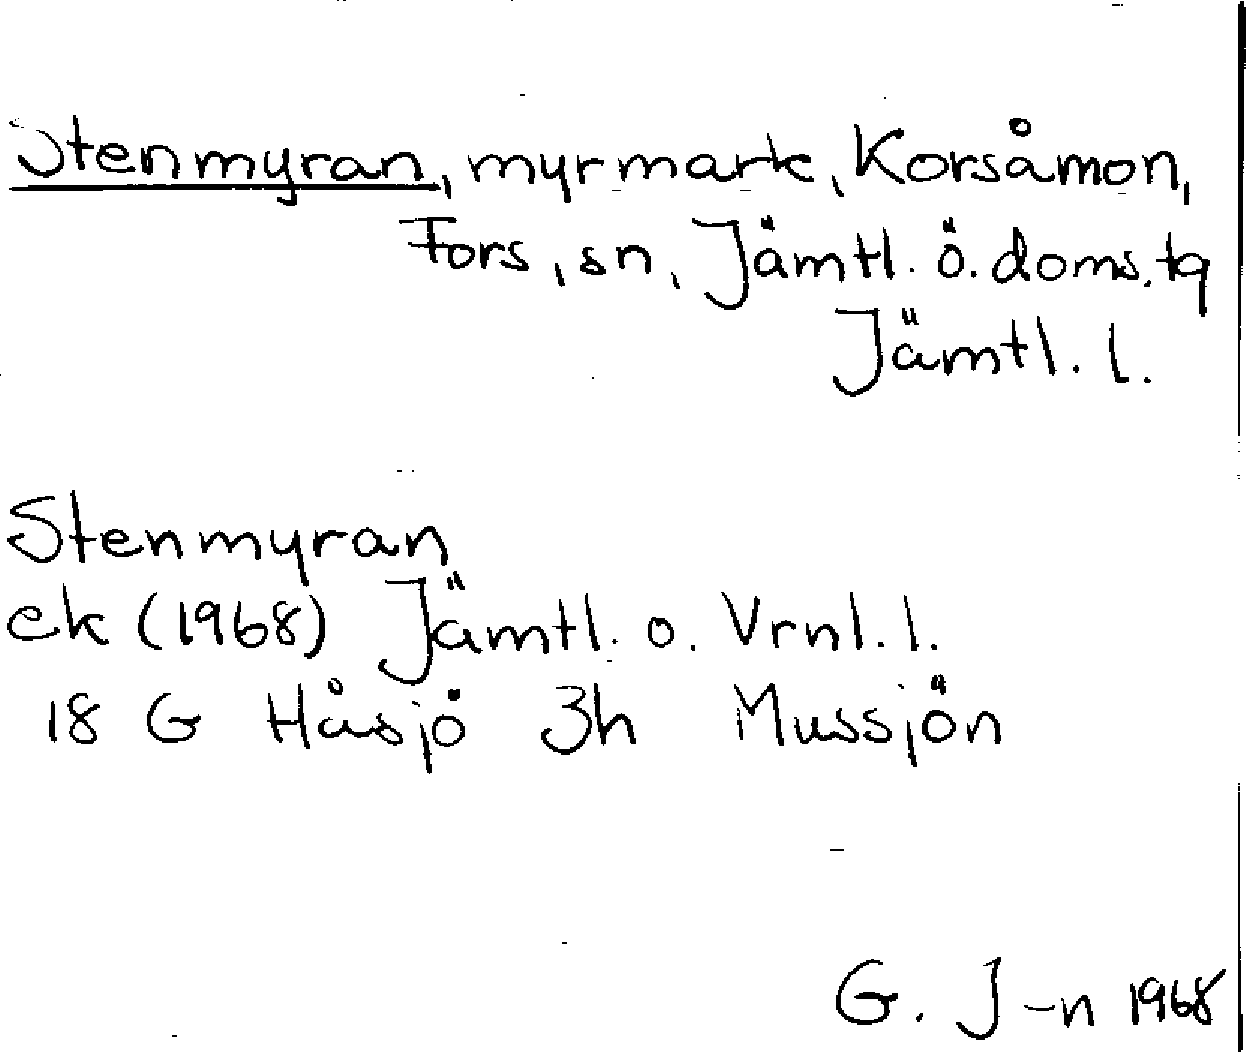 Stenmyran, myrmark, Korsåmon,
Fors, sn, Jämtl. ö. doms. tg
Jämtl. l.
Stenmyran
ek (1968) Jämtl. o. Vrnl. l.
18 G Håsjö 3h Mussjön
G. J-n 1968